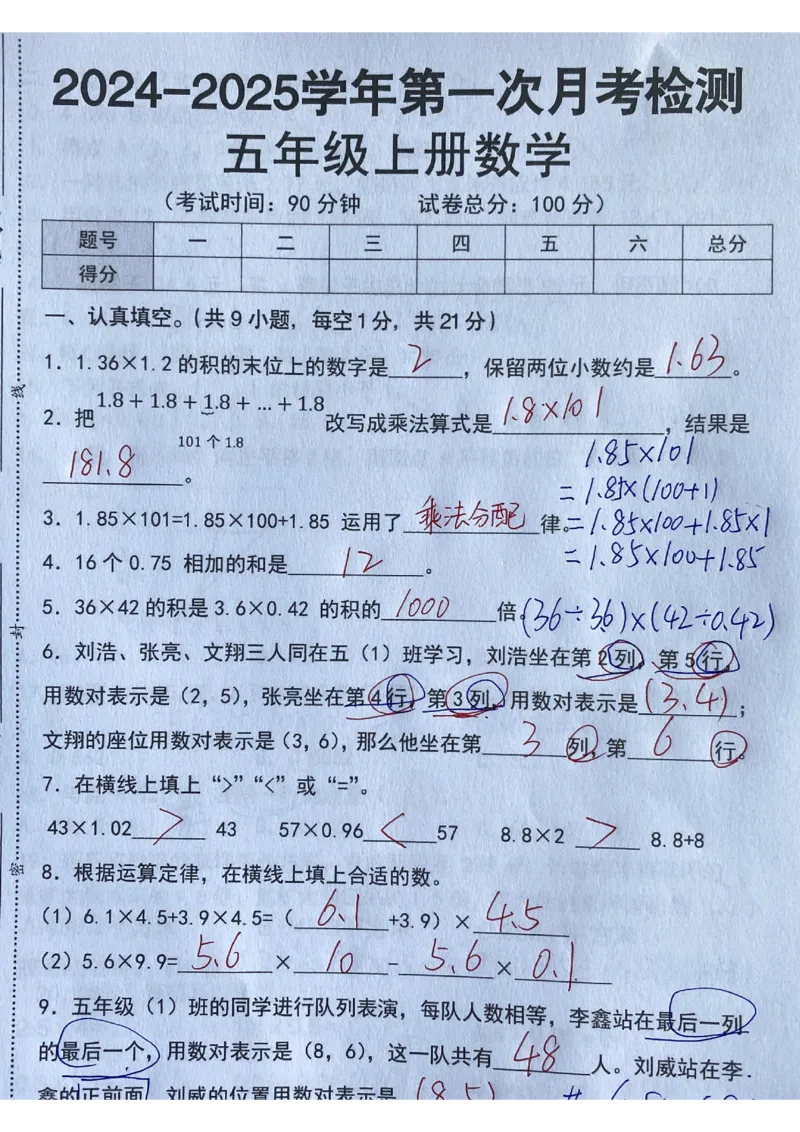 2024-2025学年第一次月考检测
五年级上册数学
(考试时间：90分钟 试卷总分：100分)
题号 一 二 三 四 五 六 总分
得分
一、认真填空。(共9小题，每空1分，共21分)
1. 1.36×1.2的积的末位上的数字是 2 ，保留两位小数约是 1.63 。
2. 把 1.8+1.8+1.8+…+1.8 改写成乘法算式是 1.8×101 ，结果是
101个1.8
181.8 。
1.85×101
=1.85×(100+1)
3. 1.85×101=1.85×100+1.85 运用了 乘法分配 律。
=1.85×100+1.85×1
=1.85×100+1.85
4. 16个0.75 相加的和是 12 。
5. 36×42的积是3.6×0.42 的积的 1000 倍。
(36÷3.6)×(42÷0.42)
6. 刘浩、张亮、文翔三人同在五（1）班学习，刘浩坐在第2列，第5行，
用数对表示是（2，5），张亮坐在第4行，第3列，用数对表示是 (3,4) ；
文翔的座位用数对表示是（3，6），那么他坐在第 3 列，第 6 行。
7. 在横线上填上“>”“<”或“=”。
43×1.02 > 43 57×0.96 < 57 8.8×2 > 8.8+8
8. 根据运算定律，在横线上填上合适的数。
(1) 6.1×4.5+3.9×4.5=( 6.1 +3.9)× 4.5
(2) 5.6×9.9= 5.6 × 10 - 5.6 × 0.1
9. 五年级（1）班的同学进行队列表演，每队人数相等，李鑫站在最后一列
的最后一个，用数对表示是（8，6），这一队共有 48 人。刘威站在李
鑫的正前面，刘威的位置用数对表示是 (8,5)
线
封
密